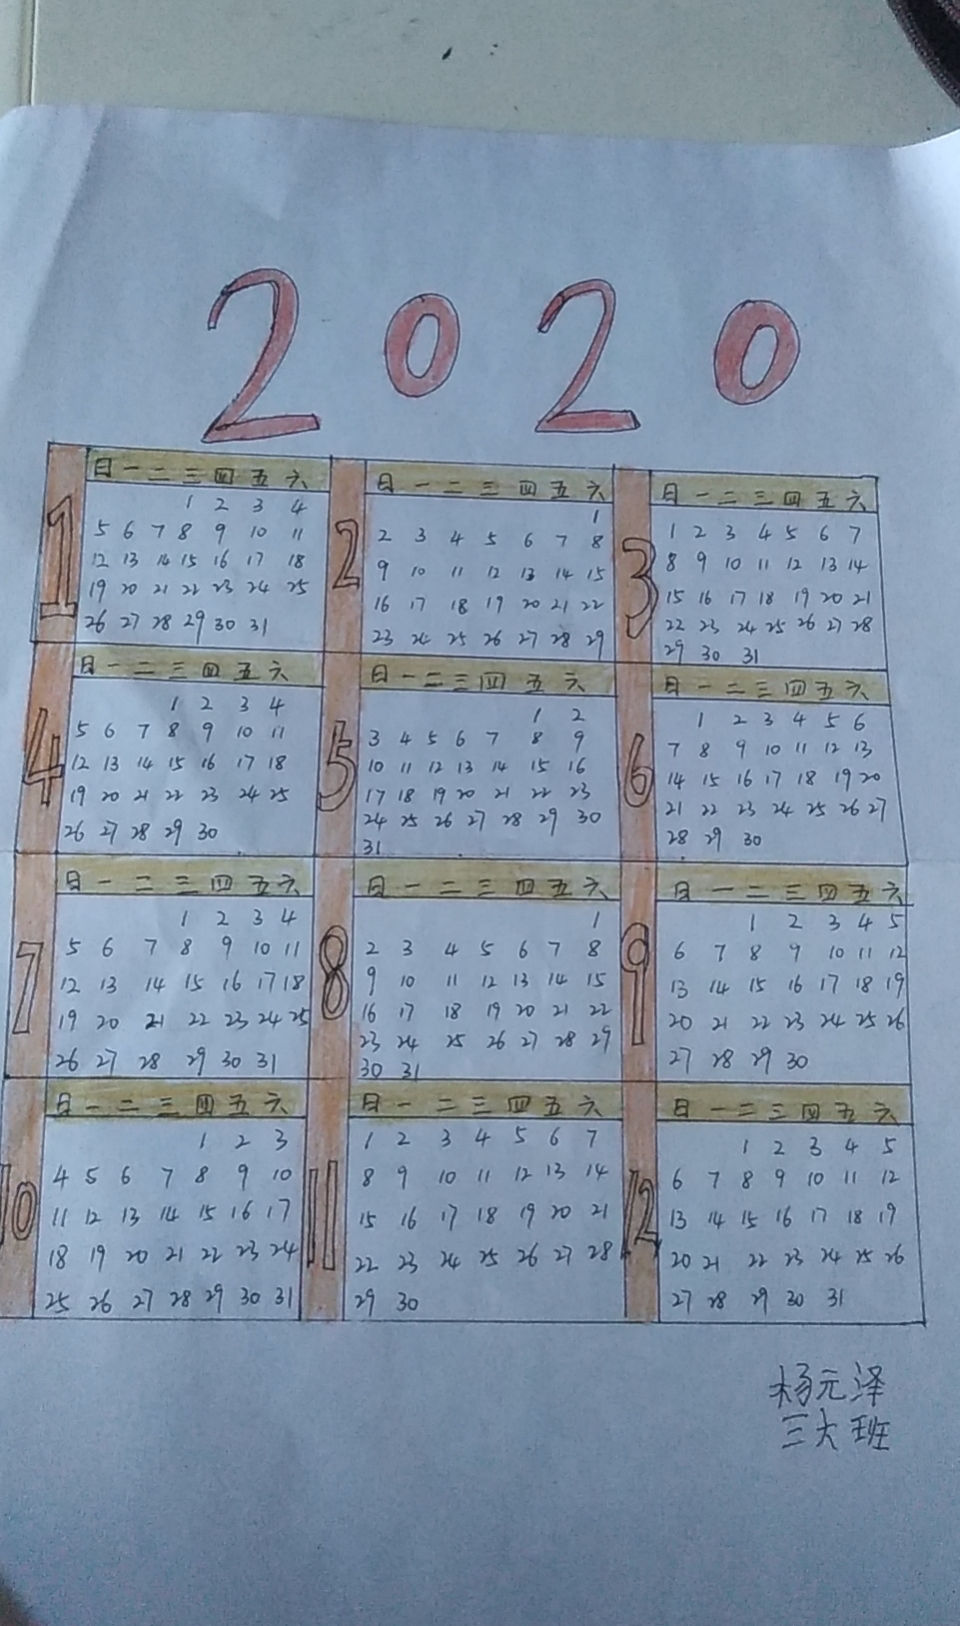 2020
1
日 一 二 三 四 五 六
1 2 3 4
5 6 7 8 9 10 11
12 13 14 15 16 17 18
19 20 21 22 23 24 25
26 27 28 29 30 31
2
日 一 二 三 四 五 六
1
2 3 4 5 6 7 8
9 10 11 12 13 14 15
16 17 18 19 20 21 22
23 24 25 26 27 28 29
3
日 一 二 三 四 五 六
1 2 3 4 5 6 7
8 9 10 11 12 13 14
15 16 17 18 19 20 21
22 23 24 25 26 27 28
29 30 31
4
日 一 二 三 四 五 六
1 2 3 4
5 6 7 8 9 10 11
12 13 14 15 16 17 18
19 20 21 22 23 24 25
26 27 28 29 30
5
日 一 二 三 四 五 六
1 2
3 4 5 6 7 8 9
10 11 12 13 14 15 16
17 18 19 20 21 22 23
24 25 26 27 28 29 30
31
6
日 一 二 三 四 五 六
1 2 3 4 5 6
7 8 9 10 11 12 13
14 15 16 17 18 19 20
21 22 23 24 25 26 27
28 29 30
7
日 一 二 三 四 五 六
1 2 3 4
5 6 7 8 9 10 11
12 13 14 15 16 17 18
19 20 21 22 23 24 25
26 27 28 29 30 31
8
日 一 二 三 四 五 六
1
2 3 4 5 6 7 8
9 10 11 12 13 14 15
16 17 18 19 20 21 22
23 24 25 26 27 28 29
30 31
9
日 一 二 三 四 五 六
1 2 3 4 5
6 7 8 9 10 11 12
13 14 15 16 17 18 19
20 21 22 23 24 25 26
27 28 29 30
10
日 一 二 三 四 五 六
1 2 3
4 5 6 7 8 9 10
11 12 13 14 15 16 17
18 19 20 21 22 23 24
25 26 27 28 29 30 31
11
日 一 二 三 四 五 六
1 2 3 4 5 6 7
8 9 10 11 12 13 14
15 16 17 18 19 20 21
22 23 24 25 26 27 28
29 30
12
日 一 二 三 四 五 六
1 2 3 4 5
6 7 8 9 10 11 12
13 14 15 16 17 18 19
20 21 22 23 24 25 26
27 28 29 30 31
杨元泽
三大班